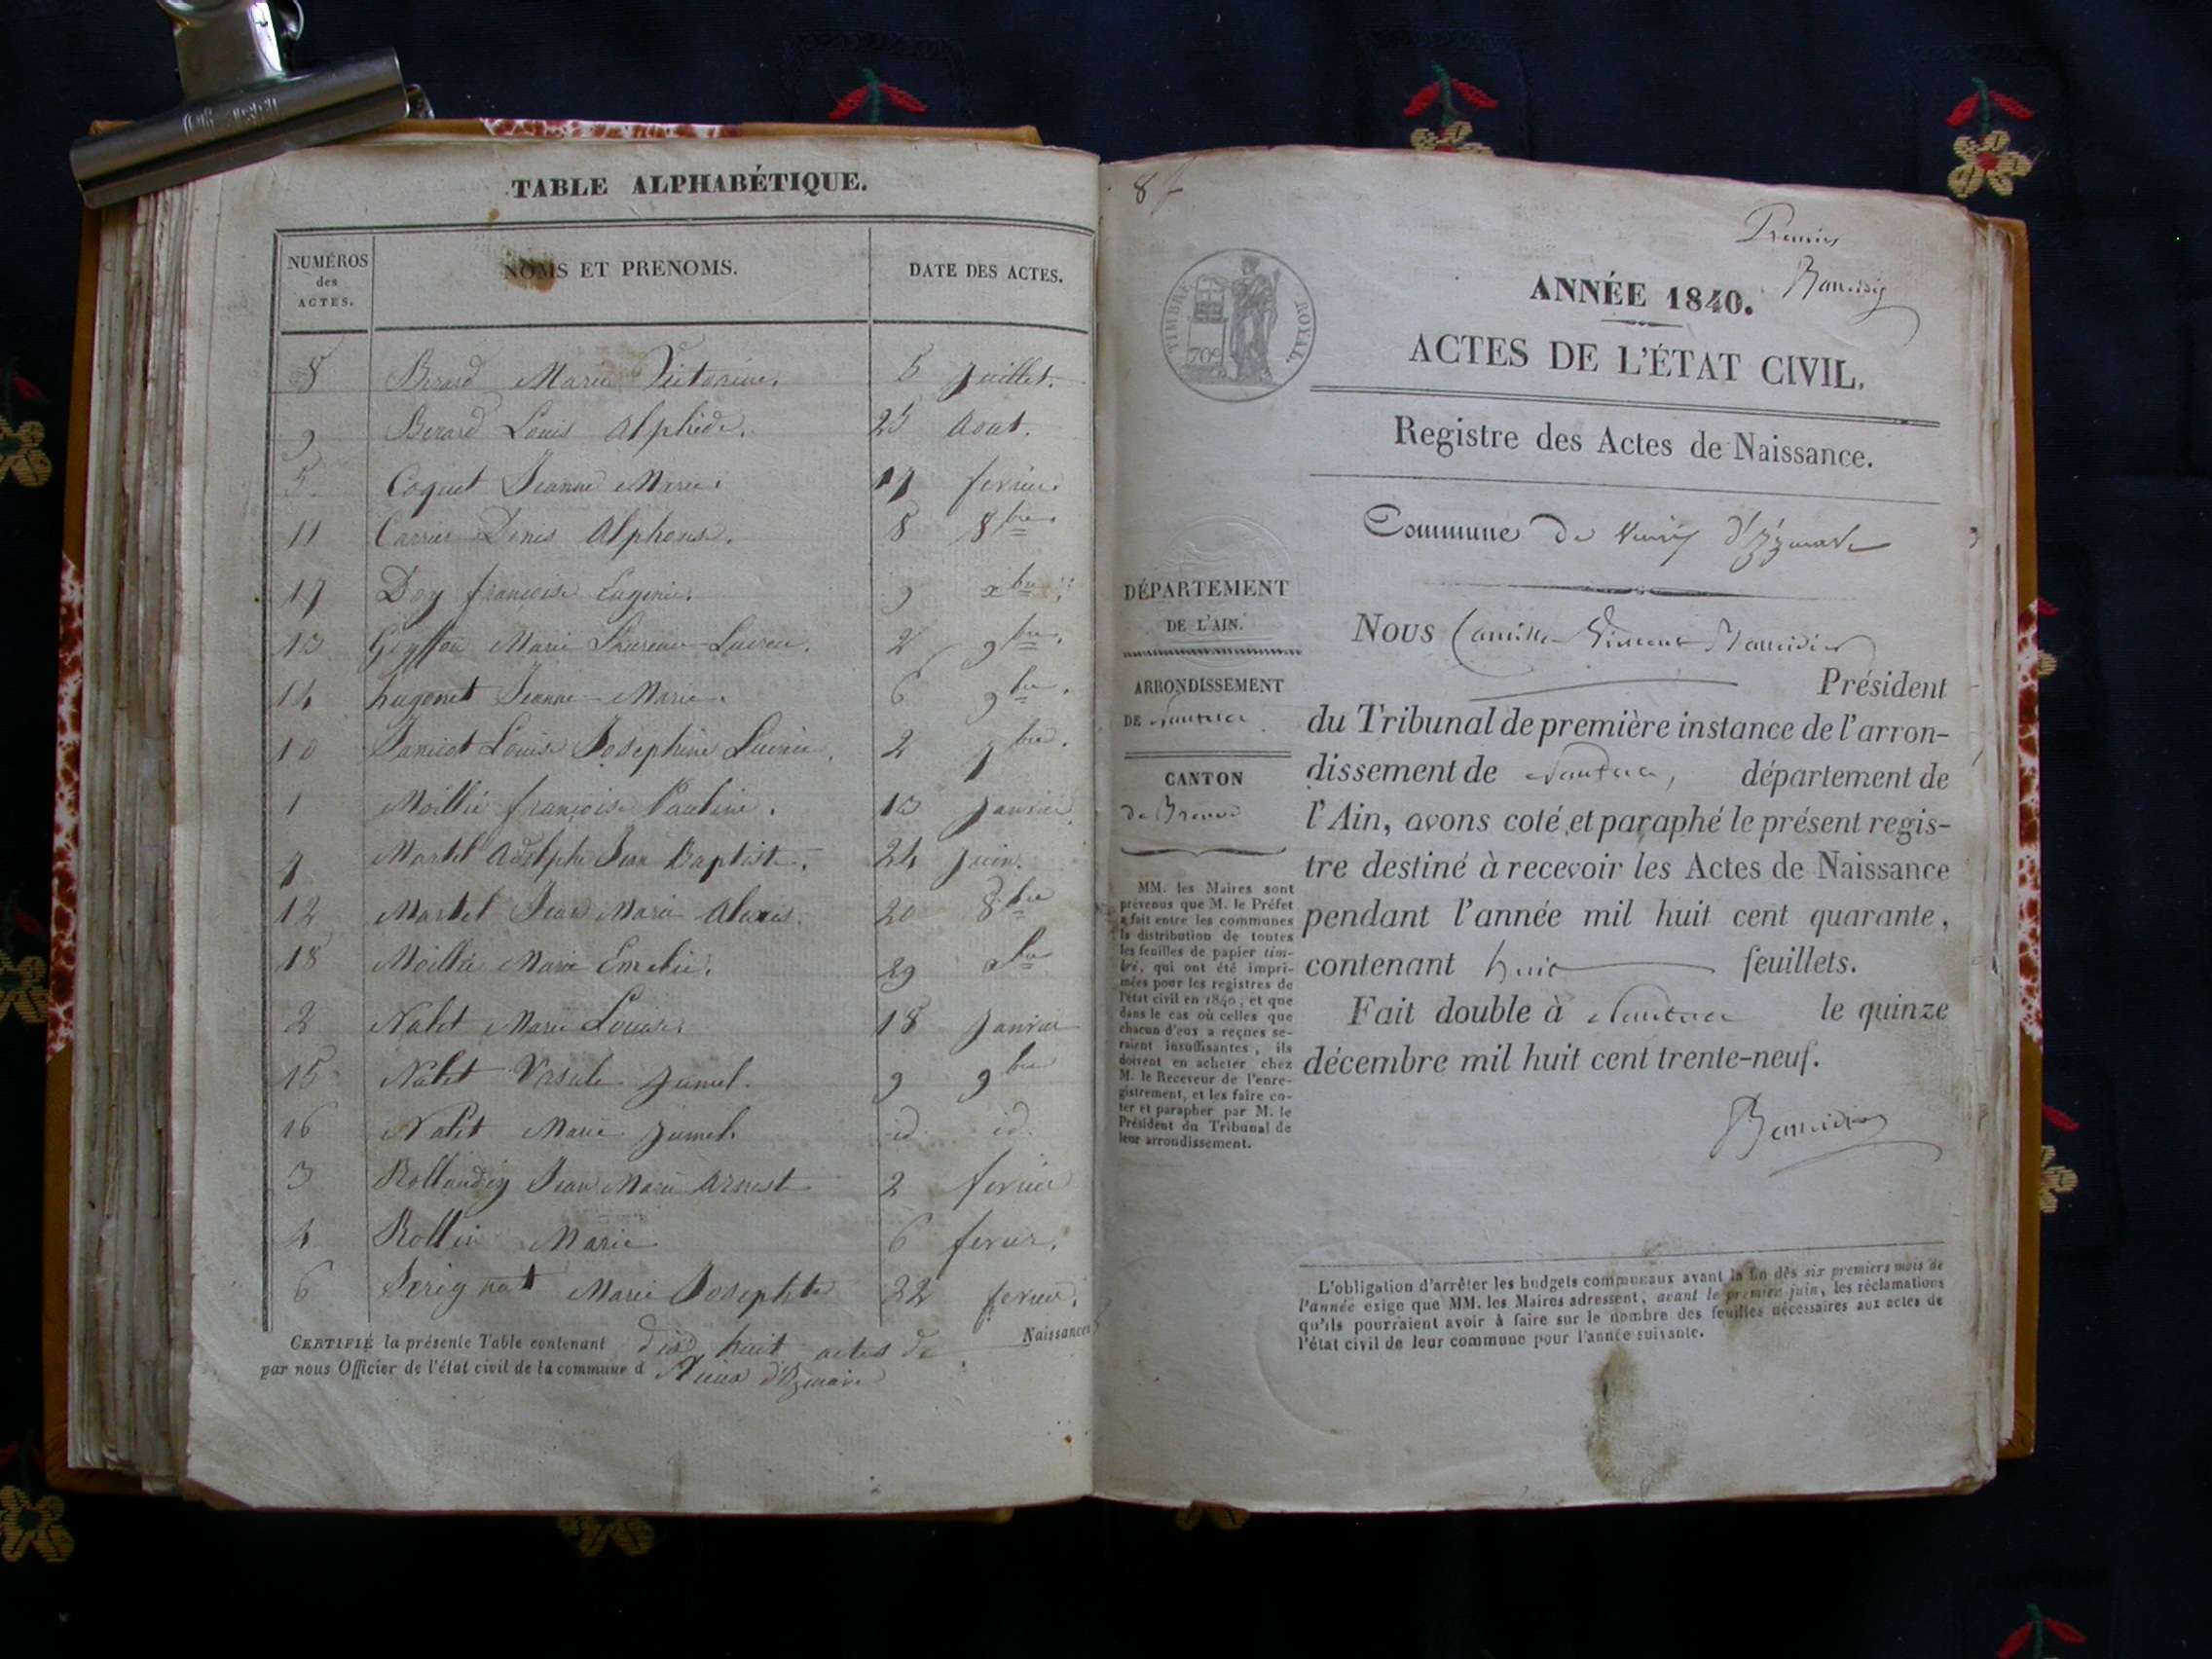 TABLE ALPHABÉTIQUE.
NUMÉROS
des
ACTES.
NOMS ET PRENOMS.
DATE DES ACTES.
8 Berard Marie Victorine. 5 Juillet.
9 Berard Louis Alphède. 25 Aout.
5. Coquet Jeanne Marie. 17 fevrier.
11 Carrier Denis Alphonse. 8 8bre
17 Doy françoise Eugenie. 9 xbre
13 Marie 2 9bre.
14 hugonet Jeanne Marie. 6 9bre.
10 Janicot Louise Josephine 2 7bre.
1 Moillié françoise Pauline. 13 Janvier
7 Martel Adolphe Jean Baptiste. 24 Juin.
12 Martel Jean Marie Alexis. 20 8bre
18 Moillié Marie Emelie. 29 xbre
2 Nalet Marie Louise. 18 Janvier
15 Nalet Ursule Jumel. 9 9bre
16 Nalet Marie Jumel. id. id.
3 Jean Marie Arnest 2 fevrier
4 Rollin Marie 6 fevrier.
6 Serignat Marie Josephte 22 fevrier.
CERTIFIÉ la présente Table contenant dix huit actes de Naissances
par nous Officier de l'état civil de la commune d
8
Premier
TIMBRE ROYAL.
70c
ANNÉE 1840.
ACTES DE L'ÉTAT CIVIL.
Registre des Actes de Naissance.
Commune de Vieux d'Izenave
DÉPARTEMENT
DE L'AIN.
ARRONDISSEMENT
DE Nantua
CANTON
de Brenod
MM. les Maires sont
prévenus que M. le Préfet
a fait entre les communes
la distribution de toutes
les feuilles de papier tim-
bré, qui ont été impri-
mées pour les registres de
l'état civil en 1840, et que
dans le cas où celles que
chacun d'eux a reçues se-
raient insuffisantes, ils
doivent en acheter chez
M. le Receveur de l'enre-
gistrement, et les faire co-
ter et parapher par M. le
Président du Tribunal de
leur arrondissement.
Nous Camille Vincent
Président
du Tribunal de première instance de l'arron-
dissement de Nantua, département de
l'Ain, avons coté et paraphé le présent regis-
tre destiné à recevoir les Actes de Naissance
pendant l'année mil huit cent quarante,
contenant huit feuillets.
Fait double à Nantua le quinze
décembre mil huit cent trente-neuf.
L'obligation d'arrêter les budgets communaux avant la fin des six premiers mois de
l'année exige que MM. les Maires adressent, avant le premier juin, les réclamations
qu'ils pourraient avoir à faire sur le nombre des feuilles nécessaires aux actes de
l'état civil de leur commune pour l'année suivante.